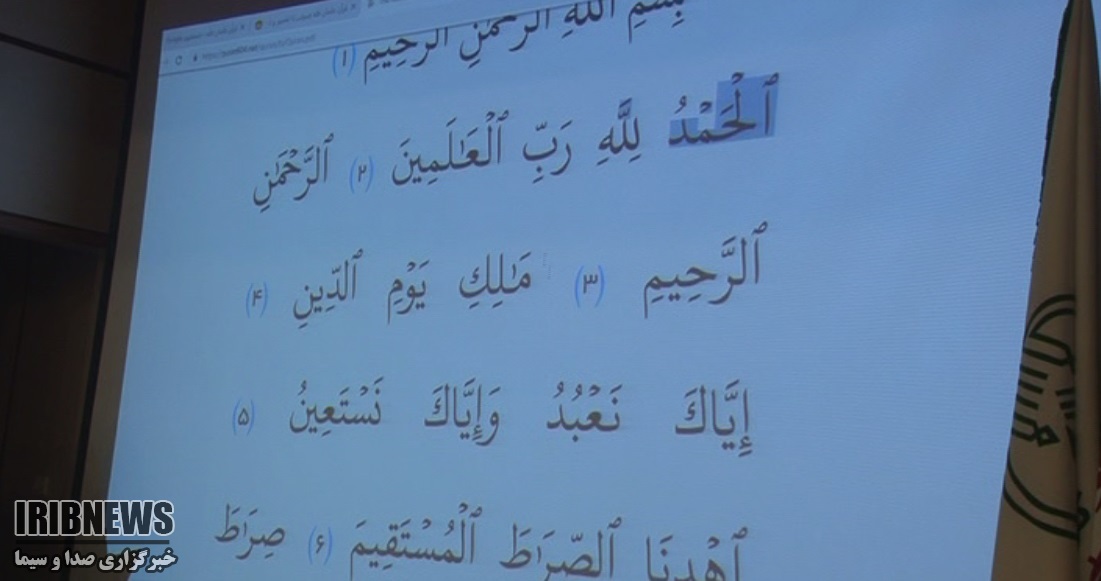 بِسْمِ ٱللَّهِ ٱلرَّحْمَٰنِ ٱلرَّحِيمِ (۱)
ٱلْحَمْدُ لِلَّهِ رَبِّ ٱلْعَٰلَمِينَ (۲) ٱلرَّحْمَٰنِ
ٱلرَّحِيمِ (۳) مَٰلِكِ يَوْمِ ٱلدِّينِ (۴)
إِيَّاكَ نَعْبُدُ وَإِيَّاكَ نَسْتَعِينُ (۵)
ٱهْدِنَا ٱلصِّرَٰطَ ٱلْمُسْتَقِيمَ (۶) صِرَٰطَ
IRIBNEWS
خبرگزاری صدا و سیما